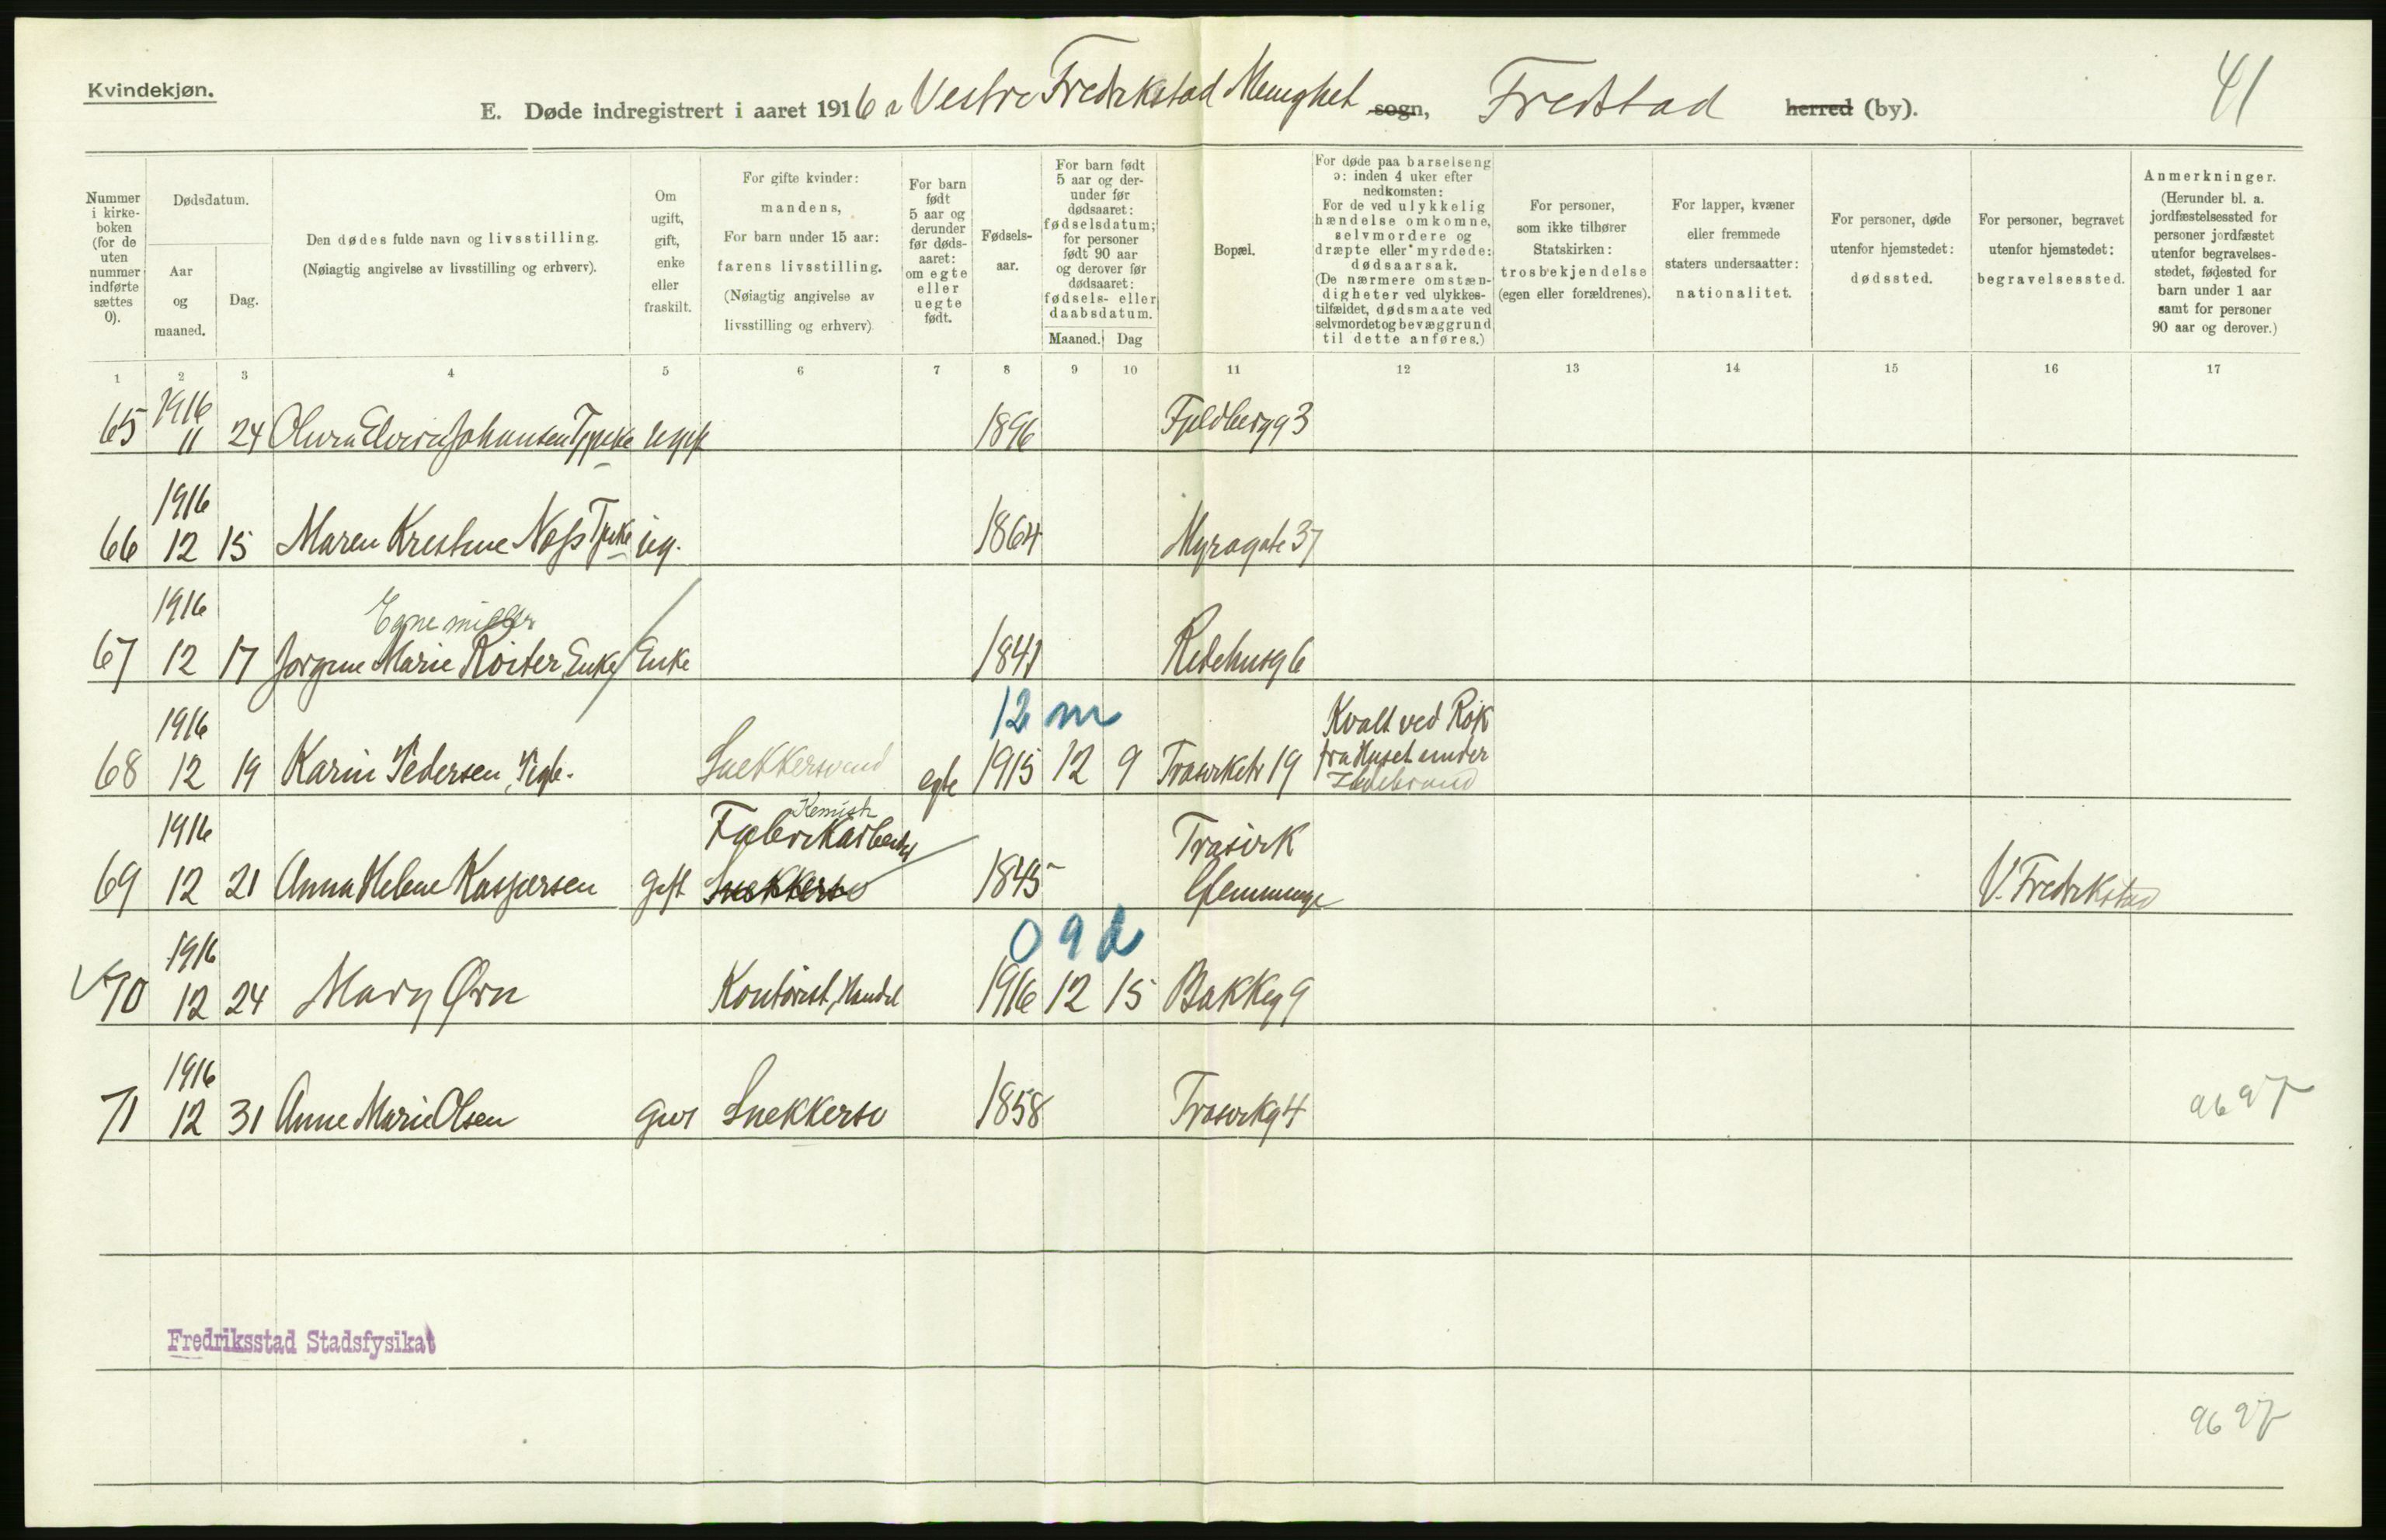 Kvindekjøn.
41
E. Døde indregistrert i aaret 1916 Vestre Fredrkstad Menighet sogn, Fredstad herred (by).
Nummer i kirke-boken (for de uten nummer indførte sættes 0).
Dødsdatum.
Aar og maaned.
Dag.
Den dødes fulde navn og livsstilling.
(Nøiagtig angivelse av livsstilling og erhverv).
Om ugift, gift, enke eller fraskilt.
For gifte kvinder: mandens,
For barn under 15 aar: farens livsstilling.
(Nøiagtig angivelse av livsstilling og erhverv)
For barn født 5 aar og derunder før døds-aaret: om egte eller uegte født.
Fødsels-aar.
For barn født 5 aar og der-under før dødsaaret: fødselsdatum; for personer født 90 aar og derover før dødsaaret: fødsels- eller daabsdatum.
Maaned. Dag
Bopæl.
For døde paa barselseng ɔ: inden 4 uker efter nedkomsten:
For de ved ulykkelig hændelse omkomne, selvmordere og dræpte eller myrdede: dødsaarsak.
(De nærmere omstæn-digheter ved ulykkes-tilfældet, dødsmaate ved selvmordet og bevæggrund til dette anføres.)
For personer, som ikke tilhører Statskirken: trosbekjendelse (egen eller forældrenes).
For lapper, kvæner eller fremmede staters undersaatter: nationalitet.
For personer, døde utenfor hjemstedet: dødssted.
For personer, begravet utenfor hjemstedet: begravelsessted.
Anmerkninger.
(Herunder bl. a. jordfæstelsessted for personer jordfæstet utenfor begravelses-stedet, fødested for barn under 1 aar samt for personer 90 aar og derover.)
1 2 3 4 5 6 7 8 9 10 11 12 13 14 15 16 17
1916
65 11 24 Johansen ugift 1896 Fjeldbergg 3
1916
66 12 15 Maren Kristine Næss ug. 1864 Myragate 37
1916
67 12 17 Jørgine Marie Enke Enke 1841 6
12 m
1916 Kvalt ved Røk
68 12 19 Karin Pedersen, Pige. Snekkersvend egte 1915 12 9 19 fra Huset under
Ildebrand
1916 Kemisk
Fabrikarbeid Trosvik
69 12 21 Anna Helene Kaspersen gift Snekkersv 1845 Glemminge V. Fredrkstad
0 9 d
1916
70 12 24 Mary Ørn Kontorist, Handel 1916 12 15 Bakkeg 9
1916
71 12 31 Anne Marie Olsen Snekkersv 1858 Trosvikg 4 96 97
Fredriksstad Stadsfysikat
96 97